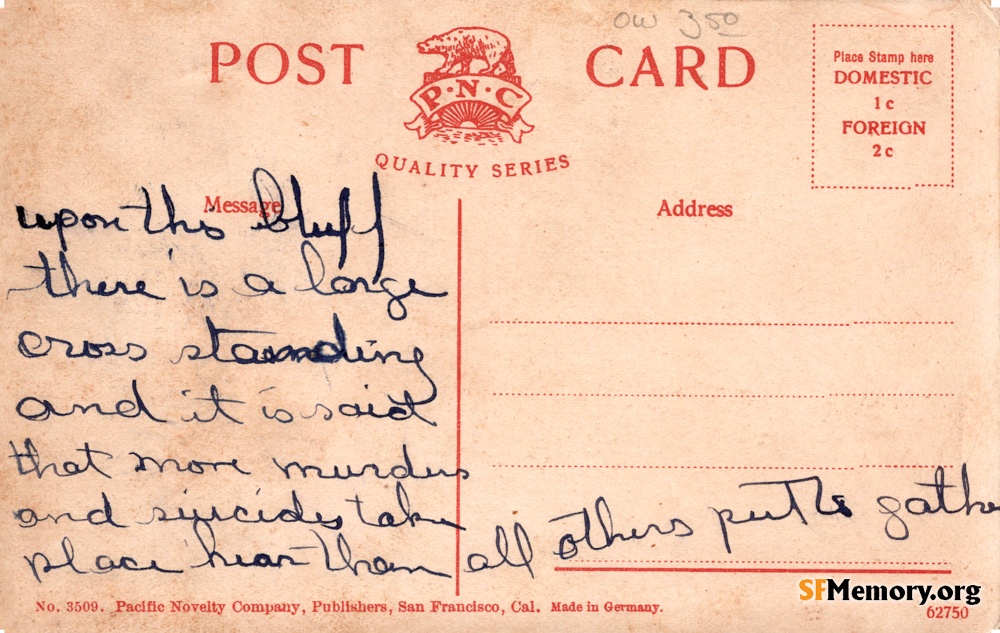 OW 350
POST CARD
P·N·C
QUALITY SERIES
Place Stamp here
DOMESTIC
1c
FOREIGN
2c
Message
Address
upon this bluff
there is a large
cross standing
and it is said
that more murders
and suicides take
place hear than all others put to gathe
No. 3509. Pacific Novelty Company, Publishers, San Francisco, Cal. Made in Germany.
SFMemory.org
62750